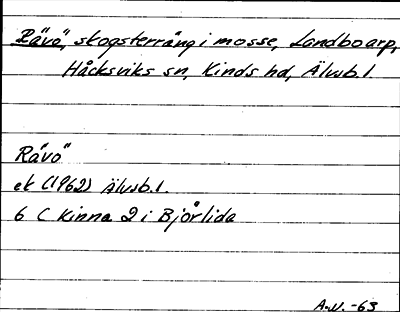 Rävö, skogsterräng i mosse, Landboarp,
Håcksviks sn, Kinds hd, Älvsb. l
Rävö
ek (1962) Älvsb. l.
6 C Kinna 2 i Björlida
A-N. -63